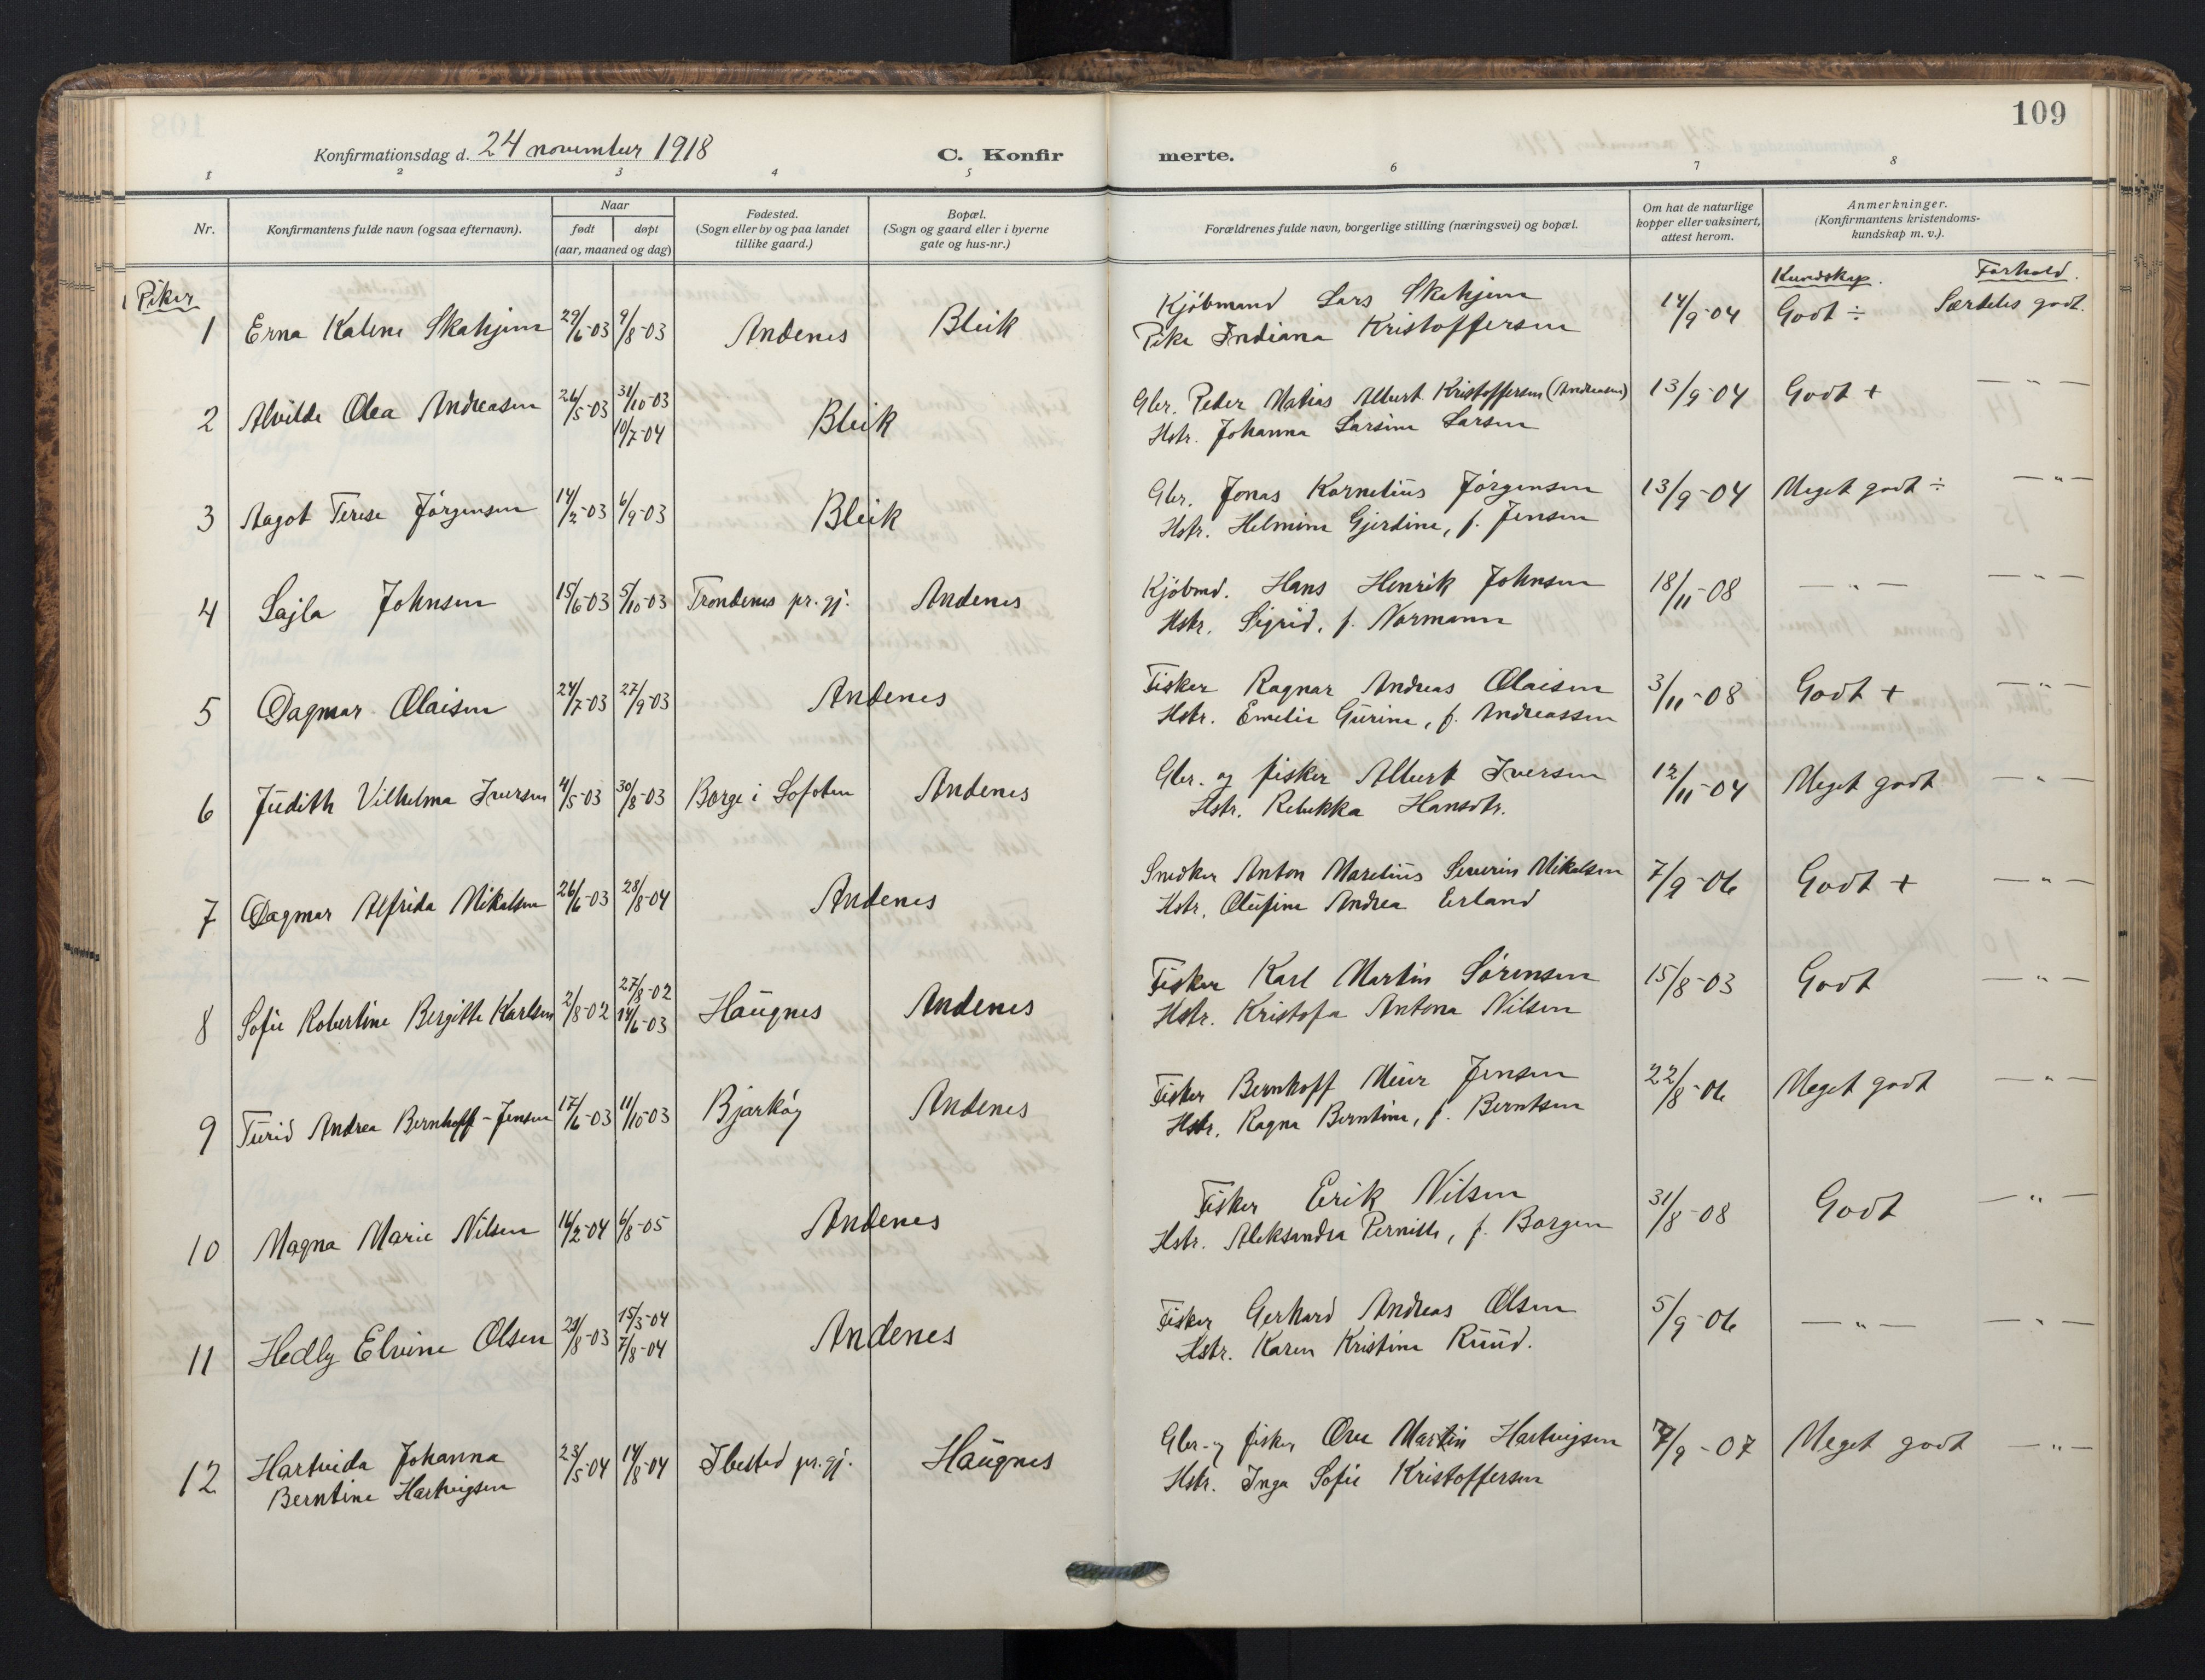 109
Konfirmationsdag d. 24 november 1918
C. Konfir merte.
1 2 3 4 5 6 7 8
Nr.
Konfirmantens fulde navn (ogsaa efternavn).
Naar
født døpt
(aar, maaned og dag)
Fødested.
(Sogn eller by og paa landet
tillike gaard.)
Bopæl.
(Sogn og gaard eller i byerne
gate og hus-nr.)
Forældrenes fulde navn, borgerlige stilling (næringsvei) og bopæl.
Om hat de naturlige
kopper eller vaksinert,
attest herom.
Anmerkninger.
(Konfirmantens kristendoms-
kundskap m. v.).
Piker
Kundskap. Forhold.
1 Erna Kaline Skahjem 29/6-03 9/8-03 Andenes Bleik
Kjøbmand Lars Skahjem
Pike Indiana Kristoffersen
14/9-04 Godt ÷ Særdeles godt.
2 Alvilde Olea Andreasen 26/5-03 31/10-03
10/7-04
Bleik
Gbr. Peder Matias Albert Kristoffersen (Andreasen)
Hstr. Johanna Larsine Larsen
13/9-04 Godt + — " —
3 Aagot Terese Jörgensen 14/2-03 6/9-03 Bleik
Gbr. Jonas Kornelius Jörgensen
Hstr. Helmine Gjerdine, f. Jensen
13/9-04 Meget godt ÷ — " —
4 Lajla Johnsen 15/6-03 5/10-03 Trondenes pr. gj. Andenes
Kjöbmd. Hans Henrik Johnsen
Hstr. Sigrid, f. Normann
18/11-08 — " — — " —
5 Dagmar Olaisen 24/7-03 27/9-03 Andenes
Fisker Ragnar Andreas Olaisen
Hstr. Emelie Gurine, f. Andreassen
3/11-08 Godt + — " —
6 Judith Vilhelma Iversen 4/5-03 30/8-03 Borge i Lofoten Andenes
Gbr. og fisker Albert Iversen
Hstr. Rebekka Hansdtr.
12/11-04 Meget godt — " —
7 Dagmar Alfrida Mikalsen 26/6-03 28/8-04 Andenes
Snedker Anton Maretius Severin Mikalsen
Hstr. Olufine Andrea Erland
7/9-06 Godt + — " —
8 Sofie Robertine Bergitte Karlsen 2/8-02 27/8-02
14/6-03
Haugnes Andenes
Fisker Karl Martin Sörensen
Hstr. Kristofa Antona Nilsen
15/8-03 Godt — " —
9 Turid Andrea Bernhoff-Jensen 17/6-03 11/10-03 Bjarköy Andenes
Fisker Bernhoff Meier Jensen
Hstr. Ragna Berntine, f. Berntsen
22/8-06 Meget godt — " —
10 Magna Marie Nilsen 16/2-04 6/8-05 Andenes
Fisker Erik Nilsen
Hstr. Aleksandra Pernille, f. Borgen
31/8-08 Godt — " —
11 Hedly Elvine Olsen 28/8-03 15/3-04
7/8-04
Andenes
Fisker Gerhard Andreas Olsen
Hstr. Karen Kristine Ruud.
5/9-06 — " — — " —
12 Hartvida Johanna
Berntine Hartvigsen
23/5-04 14/8-04 Ibestad pr. gj. Haugnes
Gbr. og fisker Ove Martin Hartvigsen
Hstr. Inga Sofie Kristoffersen
7/9-07 Meget godt — " —